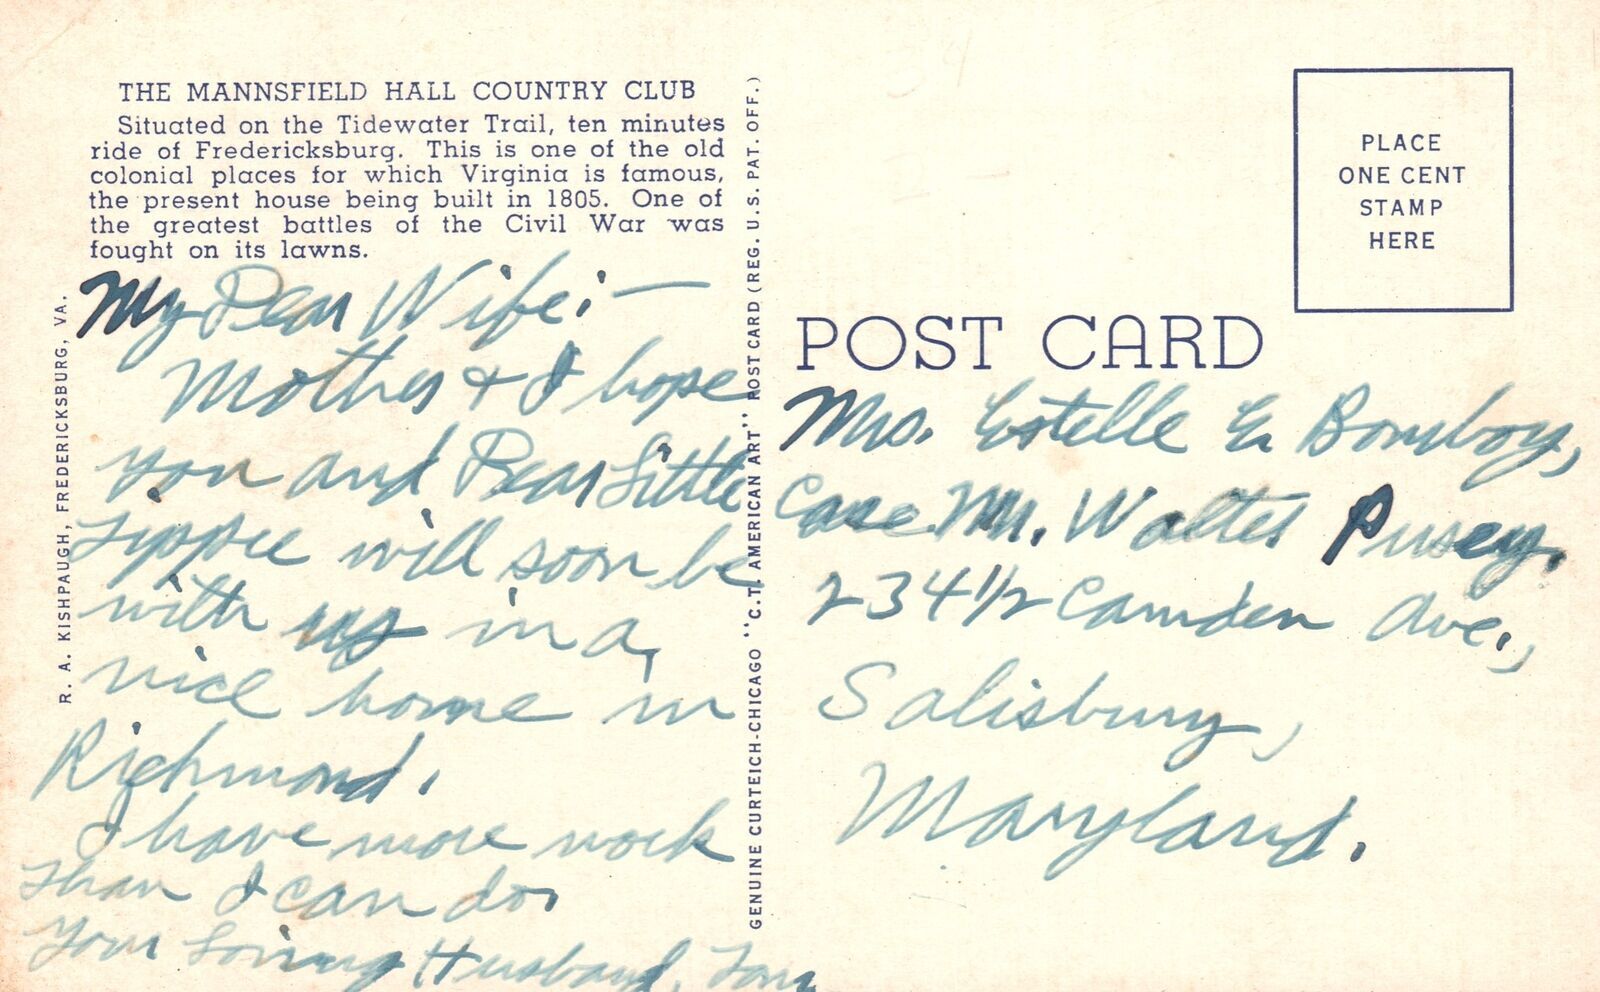 THE MANNSFIELD HALL COUNTRY CLUB
Situated on the Tidewater Trail, ten minutes
ride of Fredericksburg. This is one of the old
colonial places for which Virginia is famous,
the present house being built in 1805. One of
the greatest battles of the Civil War was
fought on its lawns.
My Dear Wife:—
Mother & I hope
you and Dear Little
Zippie will soon be
with us in a
nice home in
Richmond.
I have more work
than I can do.
Your Loving Husband, Tom
R. A. KISHPAUGH, FREDERICKSBURG, VA.
GENUINE CURTEICH-CHICAGO "C.T. AMERICAN ART" POST CARD (REG. U.S. PAT. OFF.)
PLACE
ONE CENT
STAMP
HERE
POST CARD
Mrs. Estelle E. Bomboy,
Care Mr. Walter Pusey,
234 1/2 Camden Ave.,
Salisbury,
Maryland.